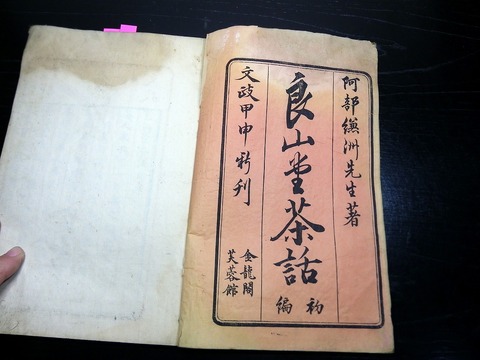 阿部縑洲先生著
良山堂茶話
初編
文政甲申新刊
金龍閣
芙蓉館